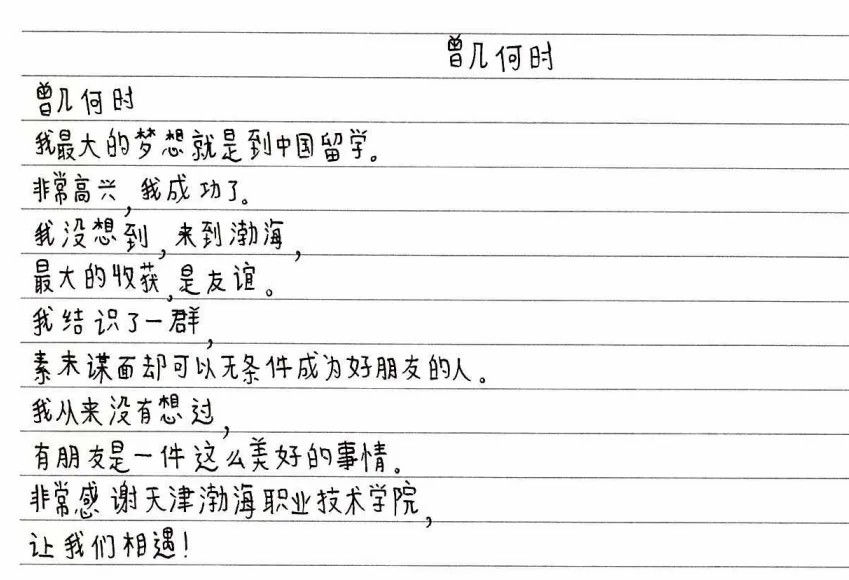 曾几何时
曾几何时
我最大的梦想就是到中国留学。
非常高兴,我成功了。
我没想到,来到渤海,
最大的收获,是友谊。
我结识了一群,
素未谋面却可以无条件成为好朋友的人。
我从来没有想过,
有朋友是一件这么美好的事情。
非常感谢天津渤海职业技术学院,
让我们相遇!